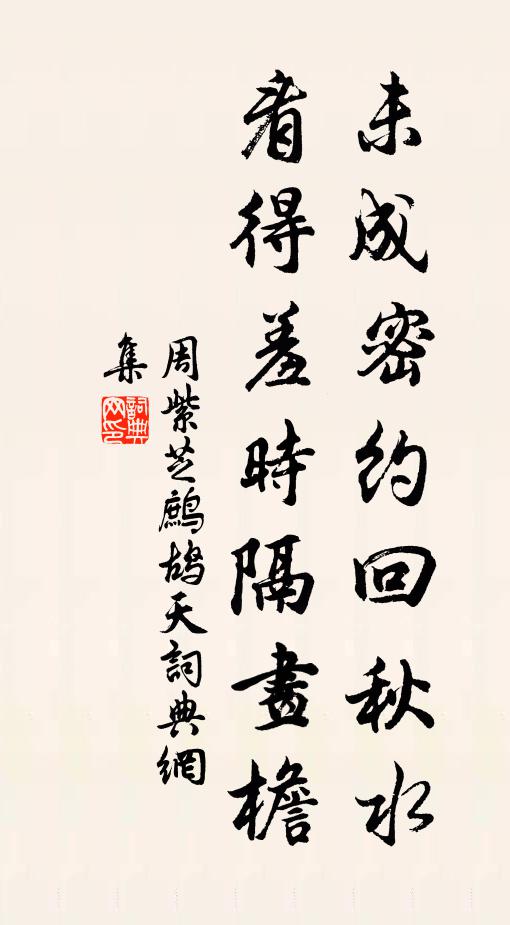 未成密約回秋水
看得羞時隔畫檐
周紫芝鷓鴣天詞典網
集
詞典
网印